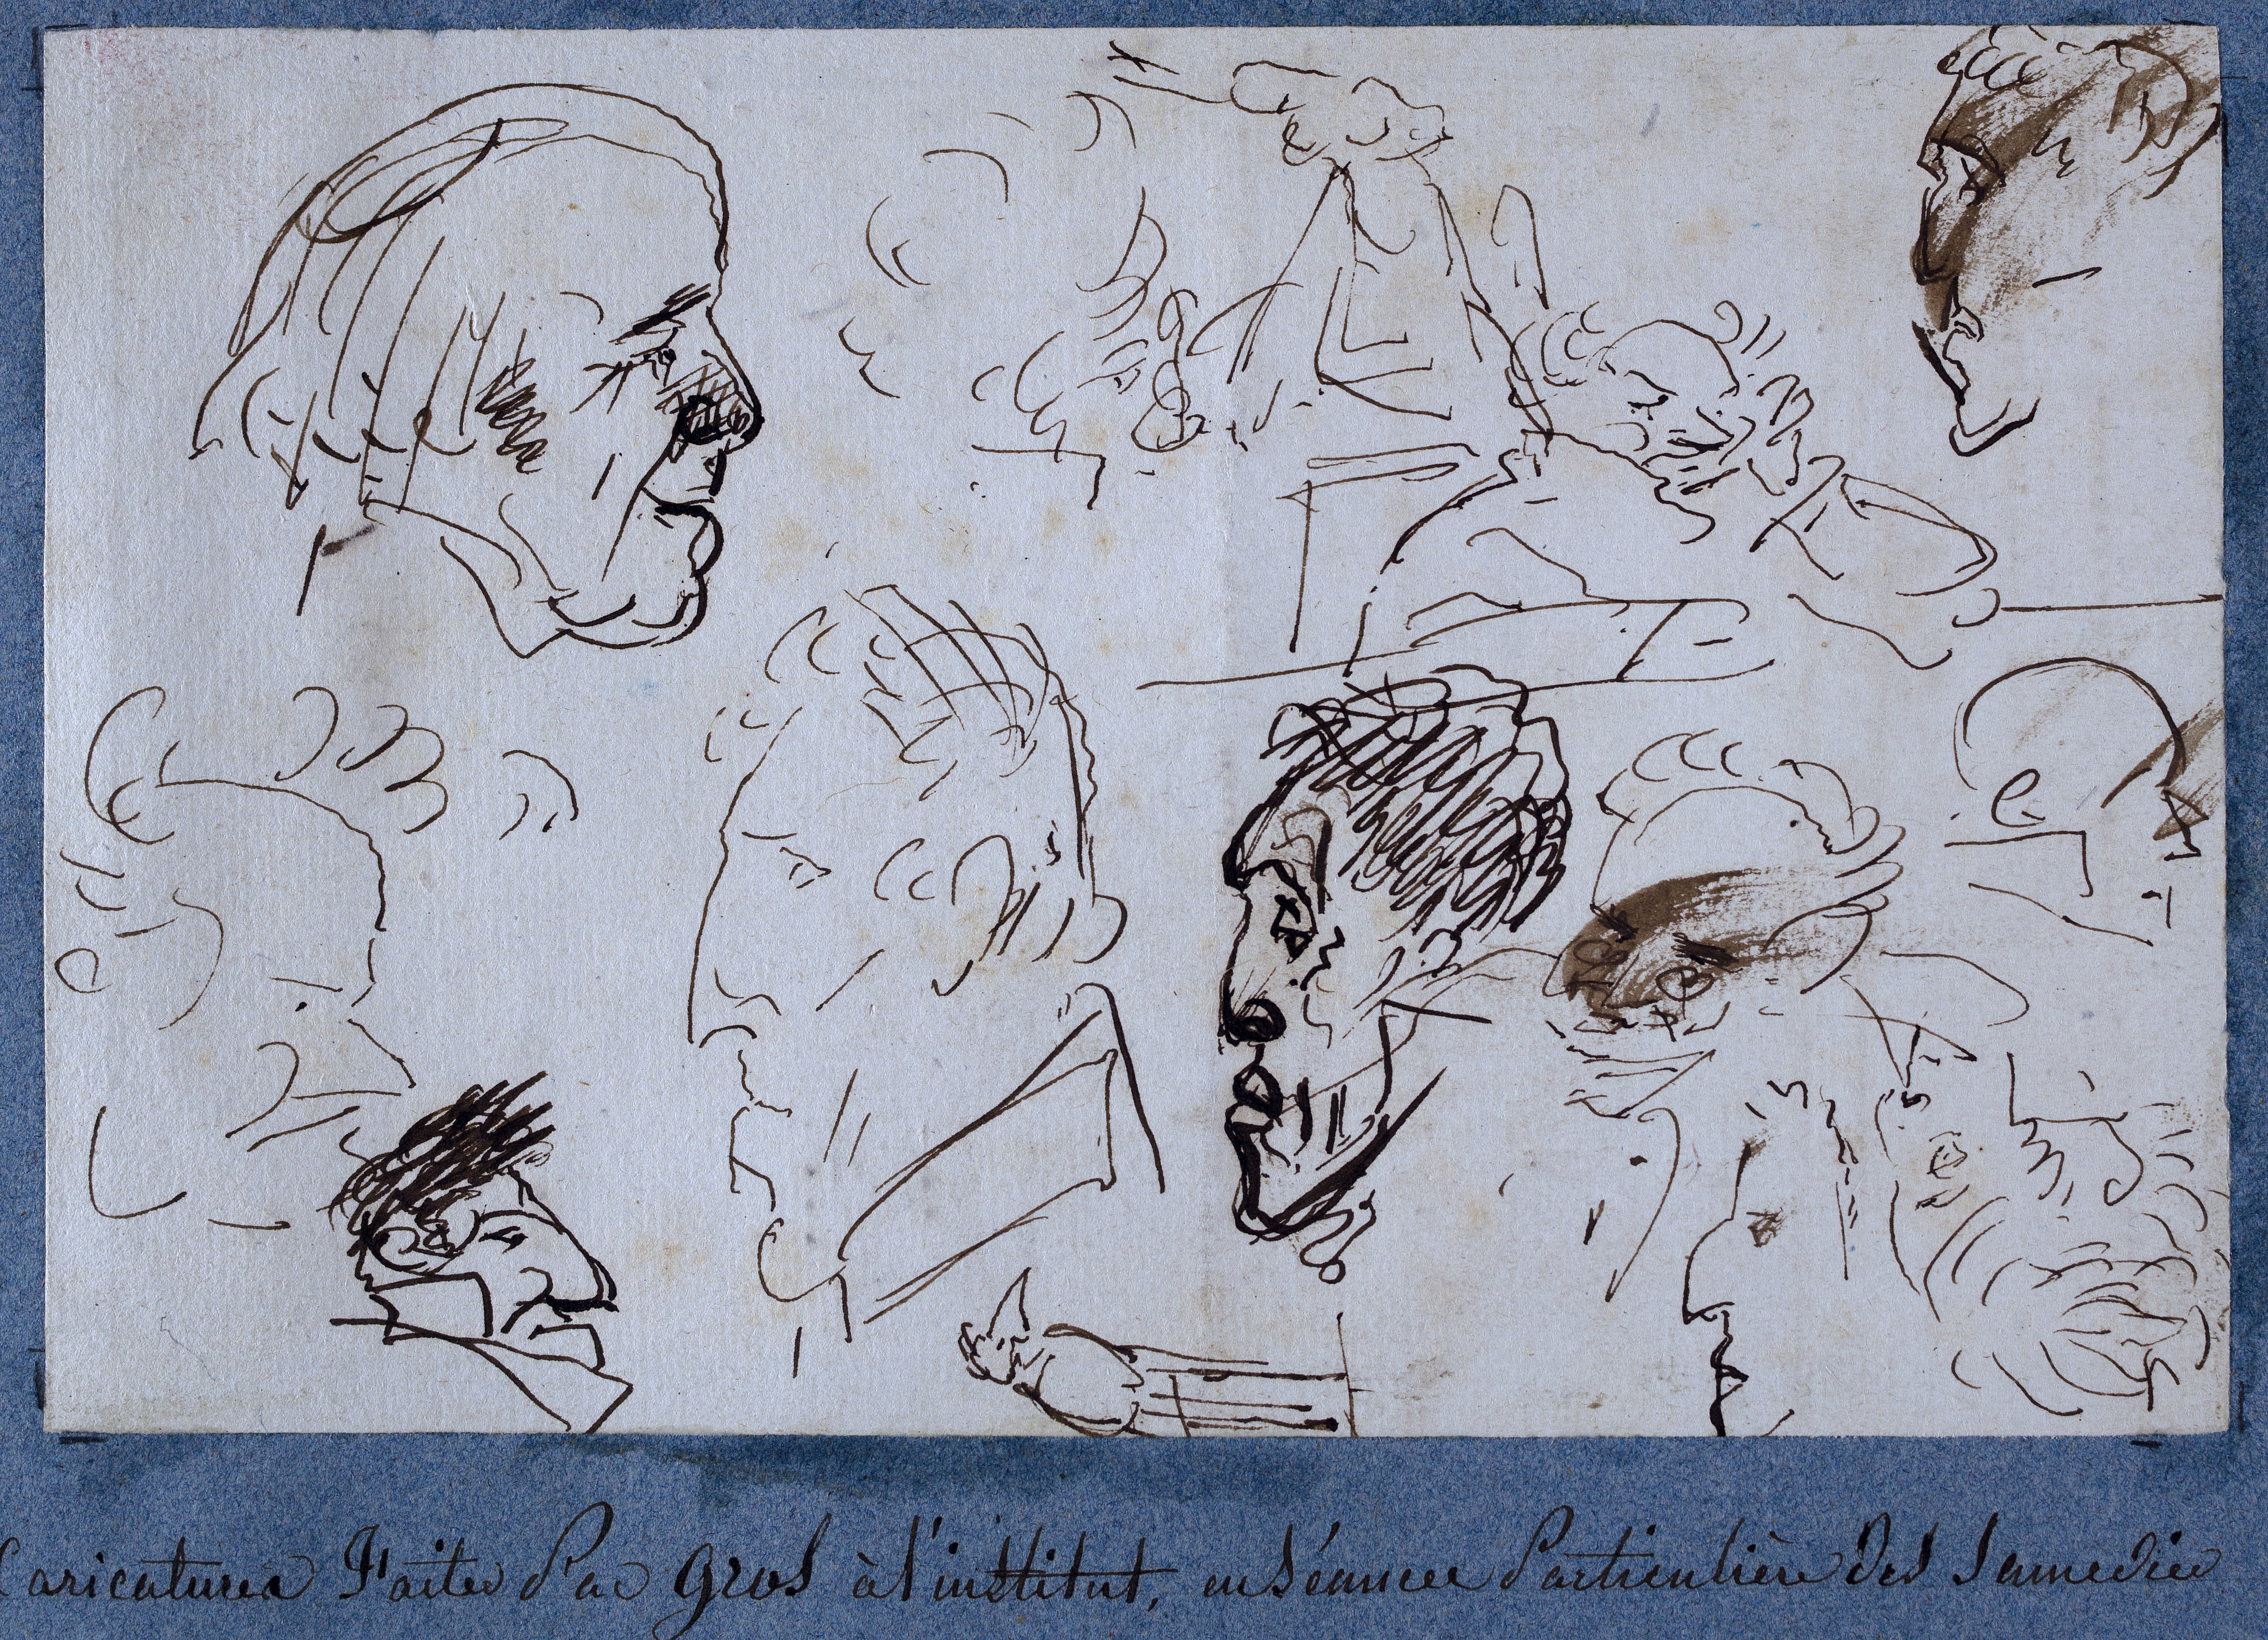 Caricatures Faites Par Gros à l'institut, en Séance Particulière des Samedis